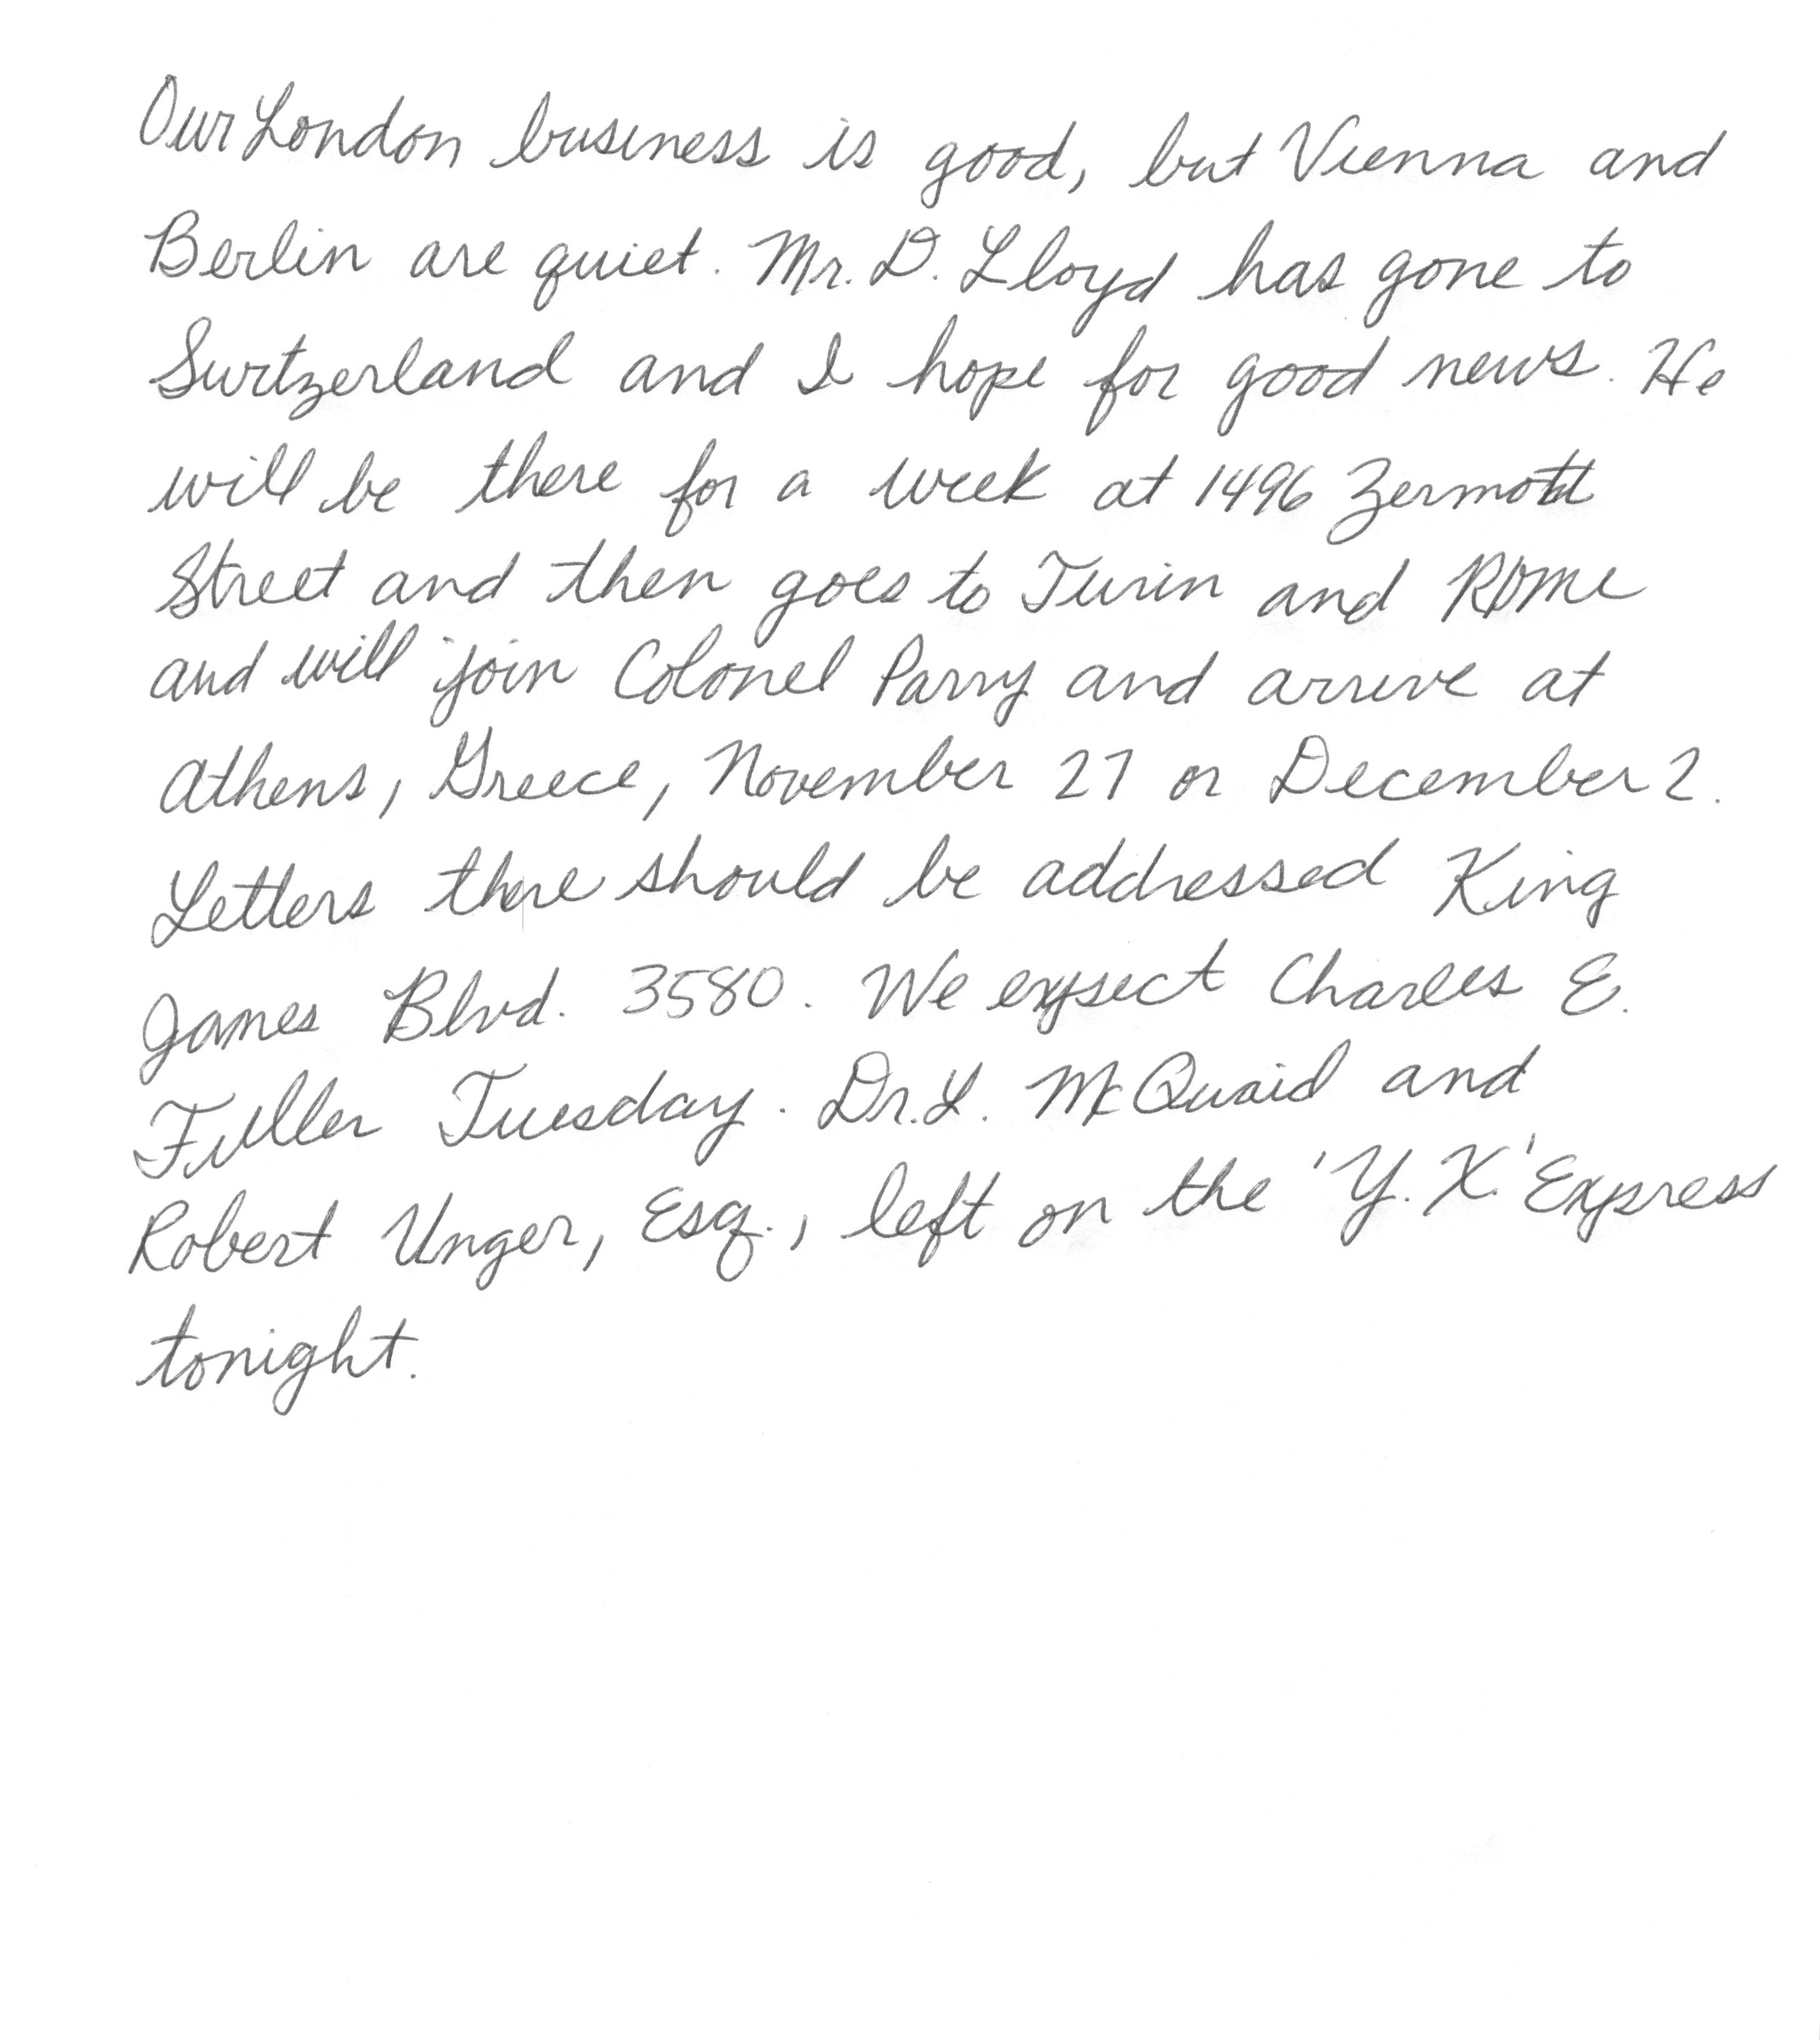 Our London business is good, but Vienna and
Berlin are quiet. Mr. D. Lloyd has gone to
Switzerland and I hope for good news. He
will be there for a week at 1496 Zermott
Street and then goes to Turin and Rome
and will join Colonel Parry and arrive at
Athens, Greece, November 27 or December 2.
Letters there should be addressed King
James Blvd. 3580. We expect Charles E.
Fuller Tuesday. Dr. L. McQuaid and
Robert Unger, Esq., left on the 'Y. X.' Express
tonight.